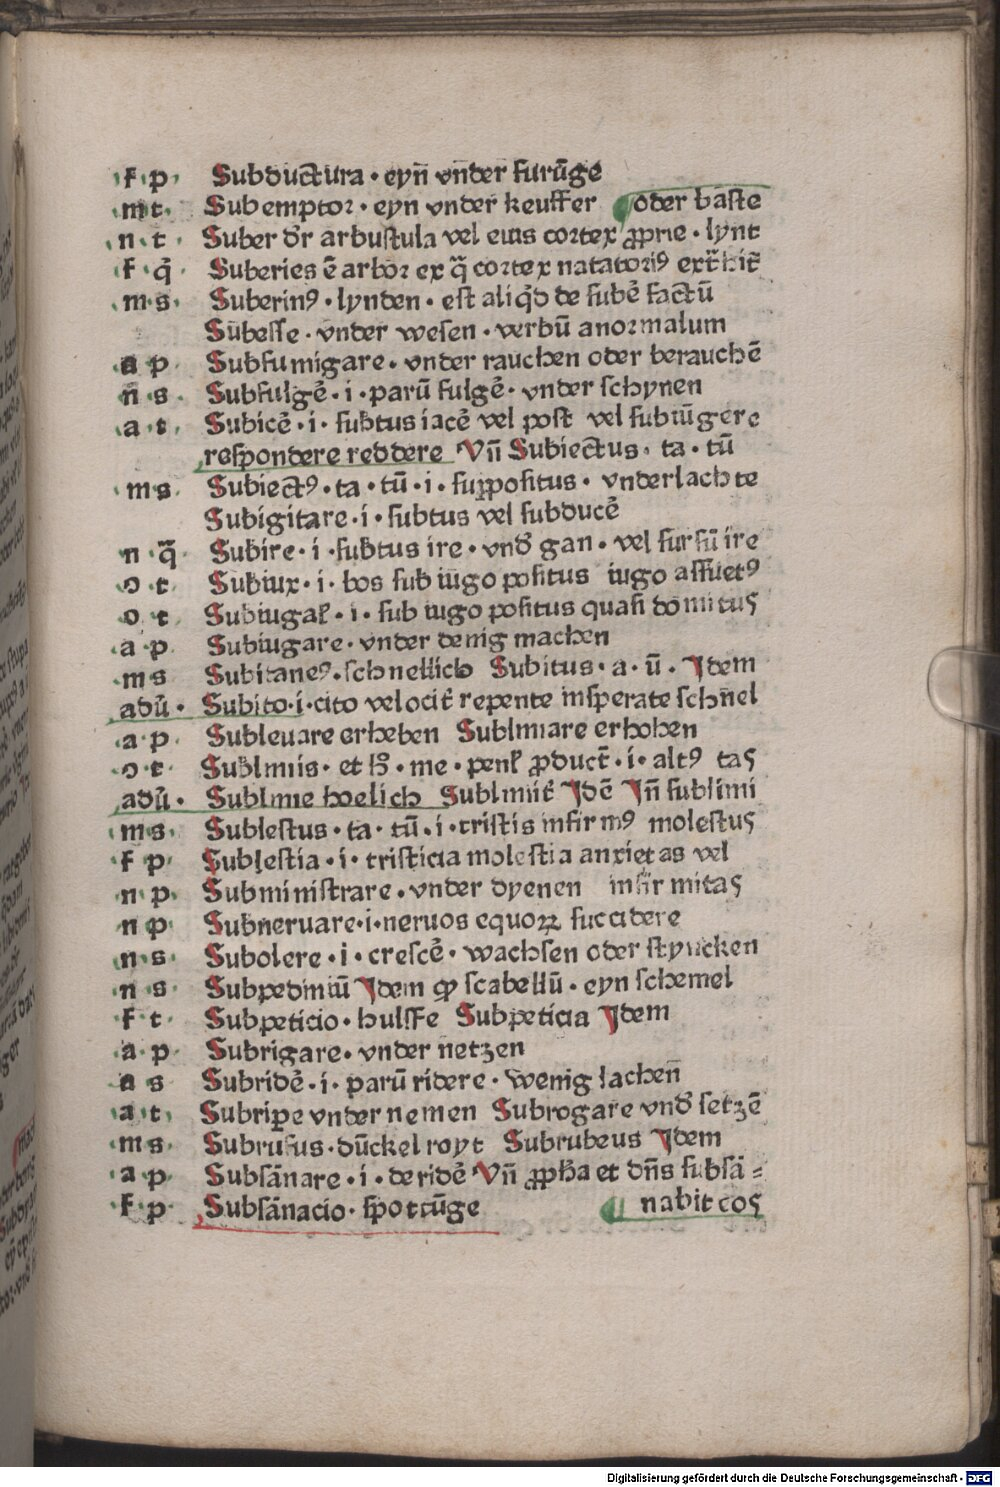 f p Subductura · eyn̄ vnder furūge
m t Subemptor · eyn vnder keuffer oder baste
n t Suber dr̄ arbustula vel eius cortex ꝓprie · lynt
f q̄ Suberies ē arbor ex q̄ cortex natatoriꝰ
m s Suberinꝰ · lynden · est aliqd̄ de subē factū
Subesse · vnder wesen · verbū anormalum
a p Subfumigare · vnder rauchen oder berauchē
n s Subfulgē · i · parū fulgē · vnder schynen
a t Subicē · i · subtus iacē vel post vel subiūgere
respondere reddere Vn̄ Subiectus · ta · tū
m s Subiectꝰ · ta · tū · i · suppositus · vnderlachte
Subigitare · i · subtus vel subducē
n q̄ Subire · i · subtus ire · vnd̄ gan · vel sursū ire
o t Subiux · i · bos sub iugo positus iugo assuetꝰ
o t Subiugal̄ · i · sub iugo positus quasi domitus
a p Subiugare · vnder denig machen
m s Subitaneꝰ · schnellich Subitus · a · ū · Idem
adū · Subito · i · cito velocit̄ repente insperate schn̄el
a p Subleuare erheben Sublimare erhohen
o t Sublimis · et h̄ · me · penl̄ ꝓduct̄ · i · altꝰ tas
adū · Sublime hoelich Sublimit̄ Idē In̄ sublimi
m s Sublestus · ta · tū · i · tristis infirmꝰ molestus
f p Sublestia · i · tristicia molestia anxietas vel
n p Subministrare · vnder dyenen infirmitas
n p Subneruare · i · neruos equoꝝ succidere
n s Subolere · i · crescē · wachsen oder styncken
n s Subpedmiū Idem qp̄ scabellū · eyn schemel
f t Subpeticio · hulffe Subpeticia Idem
a p Subrigare · vnder netzen
a s Subridē · i · parū ridere · wenig lachen̄
a t Subripe vnder nemen Subrogare vnd̄ setzē
m s Subrufus · dūckel royt Subrubeus Idem
a p Subsānare · i · deridē Vn̄ ꝓpħa et dn̄s subsā=
f p Subsānacio · spottūge nabit eos
Digitalisierung gefördert durch die Deutsche Forschungsgemeinschaft · DFG